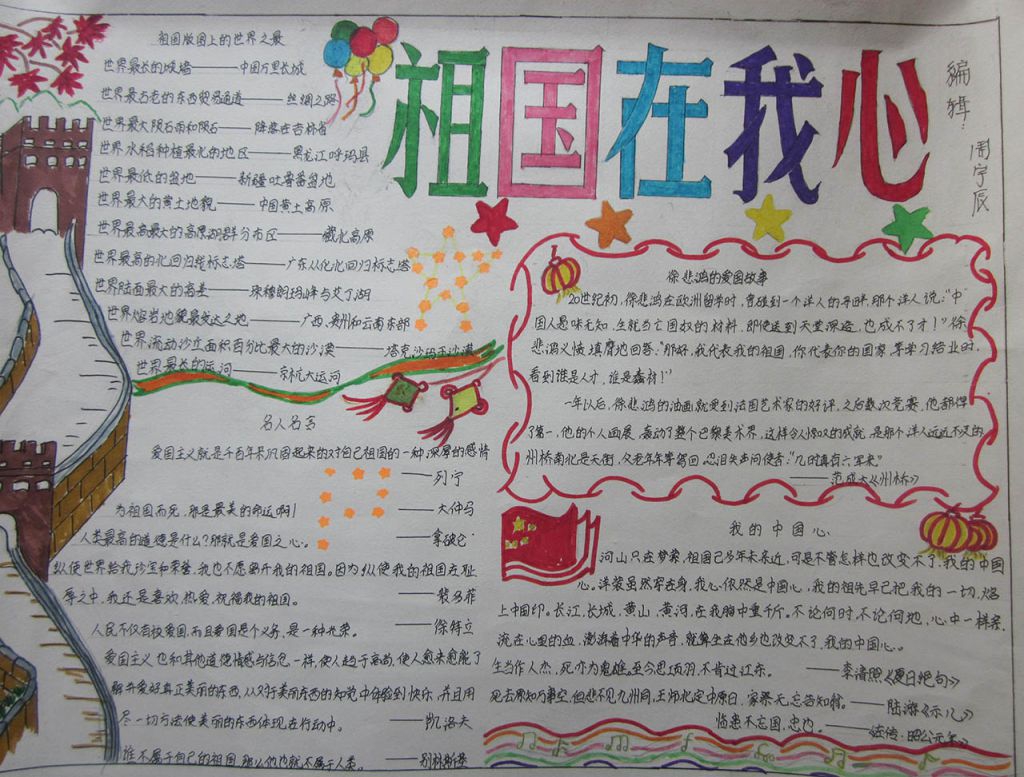 祖国在我心
编辑:
周宇辰
祖国版图上的世界之最
世界最长的城墙——中国万里长城
世界最古老的东西贸易通道——丝绸之路
世界最大陨石雨和陨石——降落在吉林省
世界水稻种植最北的地区——黑龙江呼玛县
世界最低的盆地——新疆吐鲁番盆地
世界最大的黄土地貌——中国黄土高原
世界最高最大的高原湖群分布区——藏北高原
世界最高的北回归线标志塔——广东从化北回归标志塔
世界陆面最大的高差——珠穆朗玛峰与艾丁湖
世界熔岩地貌最发达之地——广西、贵州和云南东部
世界流动沙丘面积百分比最大的沙漠——塔克沙玛干沙漠
世界最长的运河——京杭大运河
名人名言
爱国主义就是千百年来巩固起来的对自己祖国的一种深厚的感情
——列宁
为祖国而死,那是最美的命运啊!——大仲马
人类最高的道德是什么?那就是爱国之心。——拿破仑
纵使世界给我珍宝和荣誉,我也不愿离开我的祖国。因为纵使我的祖国在耻
辱之中,我还是喜欢、热爱、祝福我的祖国。——裴多菲
人民不仅有权爱国,而且爱国是个义务,是一种光荣。——徐特立
爱国主义也和其他道德情感与信念一样,使人趋于高尚,使人愈来愈能了
解并爱好真正美丽的东西,从对于美丽东西的知觉中体验到快乐,并且用
尽一切方法使美丽的东西体现在行动中。——凯洛夫
谁不属于自己的祖国,那么他也就不属于人类。——别林斯基
徐悲鸿的爱国故事
20世纪初,徐悲鸿在欧洲留学时,曾碰到一个洋人的寻衅,那个洋人说:"中
国人愚昧无知,生就当亡国奴的材料,即使送到天堂深造,也成不了才!"徐
悲鸿义愤填膺地回答:"那好,我代表我的祖国,你代表你的国家,等学习结业时,
看到谁是人才,谁是蠢材!"
一年以后,徐悲鸿的油画就受到法国艺术家的好评,之后数次竞赛,他都得
了第一,他的个人画展,轰动了整个巴黎美术界,这样令人惊叹的成就,是那个洋人远远不及的
州桥南北是天街,父老年年等驾回,忍泪失声问使者:"几时真有六军来"
——范成大《州桥》
我的中国心
河山只在梦萦,祖国已多年未亲近,可是不管怎样也改变不了,我的中国
心。洋装虽然穿在身,我心依然是中国心,我的祖先早已把我的一切,烙
上中国印。长江,长城,黄山,黄河,在我胸中重千斤。不论何时,不论何地,心中一样亲。
流在心里的血,澎湃着中华的声音,就算生在他乡也改变不了,我的中国心。
生当作人杰,死亦为鬼雄。至今思项羽,不肯过江东。——李清照《夏日绝句》
死去原知万事空,但悲不见九州同,王师北定中原日,家祭无忘告知翁。——陆游《示儿》
临患不忘国,忠也。——《左传·昭公元年》